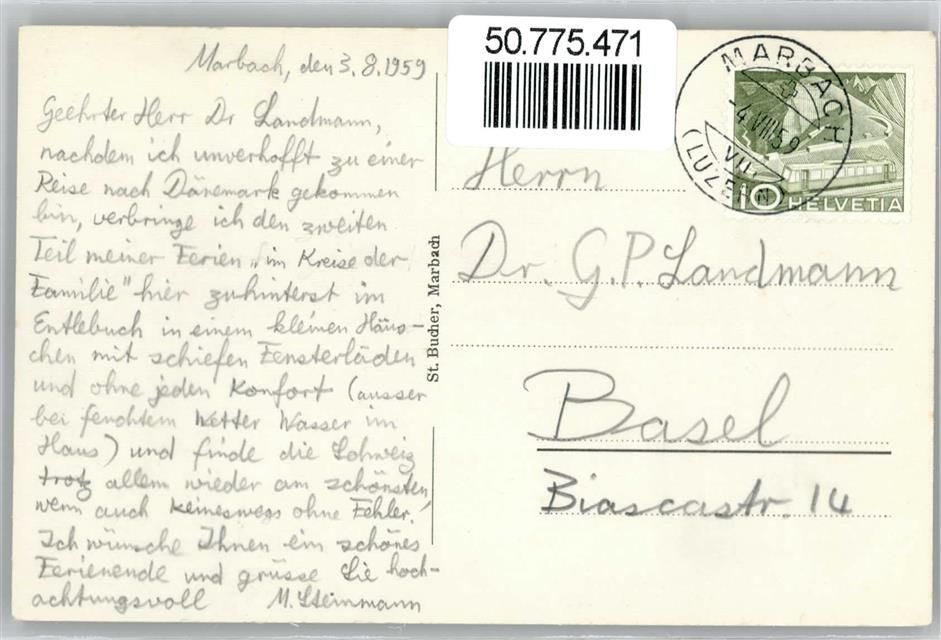 Marbach, den 3.8.1959
Geehrter Herr Dr Landmann,
nachdem ich unverhofft zu einer
Reise nach Dänemark gekommen
bin, verbringe ich den zweiten
Teil meiner Ferien „im Kreise der
Familie" hier zuhinterst im
Entlebuch in einem kleinen Häus-
chen mit schiefen Fensterläden
und ohne jeden Komfort (ausser
bei feuchtem Wetter Wasser im
Haus) und finde die Schweiz
trotz allem wieder am schönsten,
wenn auch keineswegs ohne Fehler!
Ich wünsche Ihnen ein schönes
Ferienende und grüsse Sie hoch-
achtungsvoll M. Steinmann
St. Bucher, Marbach
50.775.471
MARBACH
-4.VIII.59.
VII
(LUZERN)
10 HELVETIA
Herrn
Dr. G.P. Landmann
Basel
Biascastr. 14